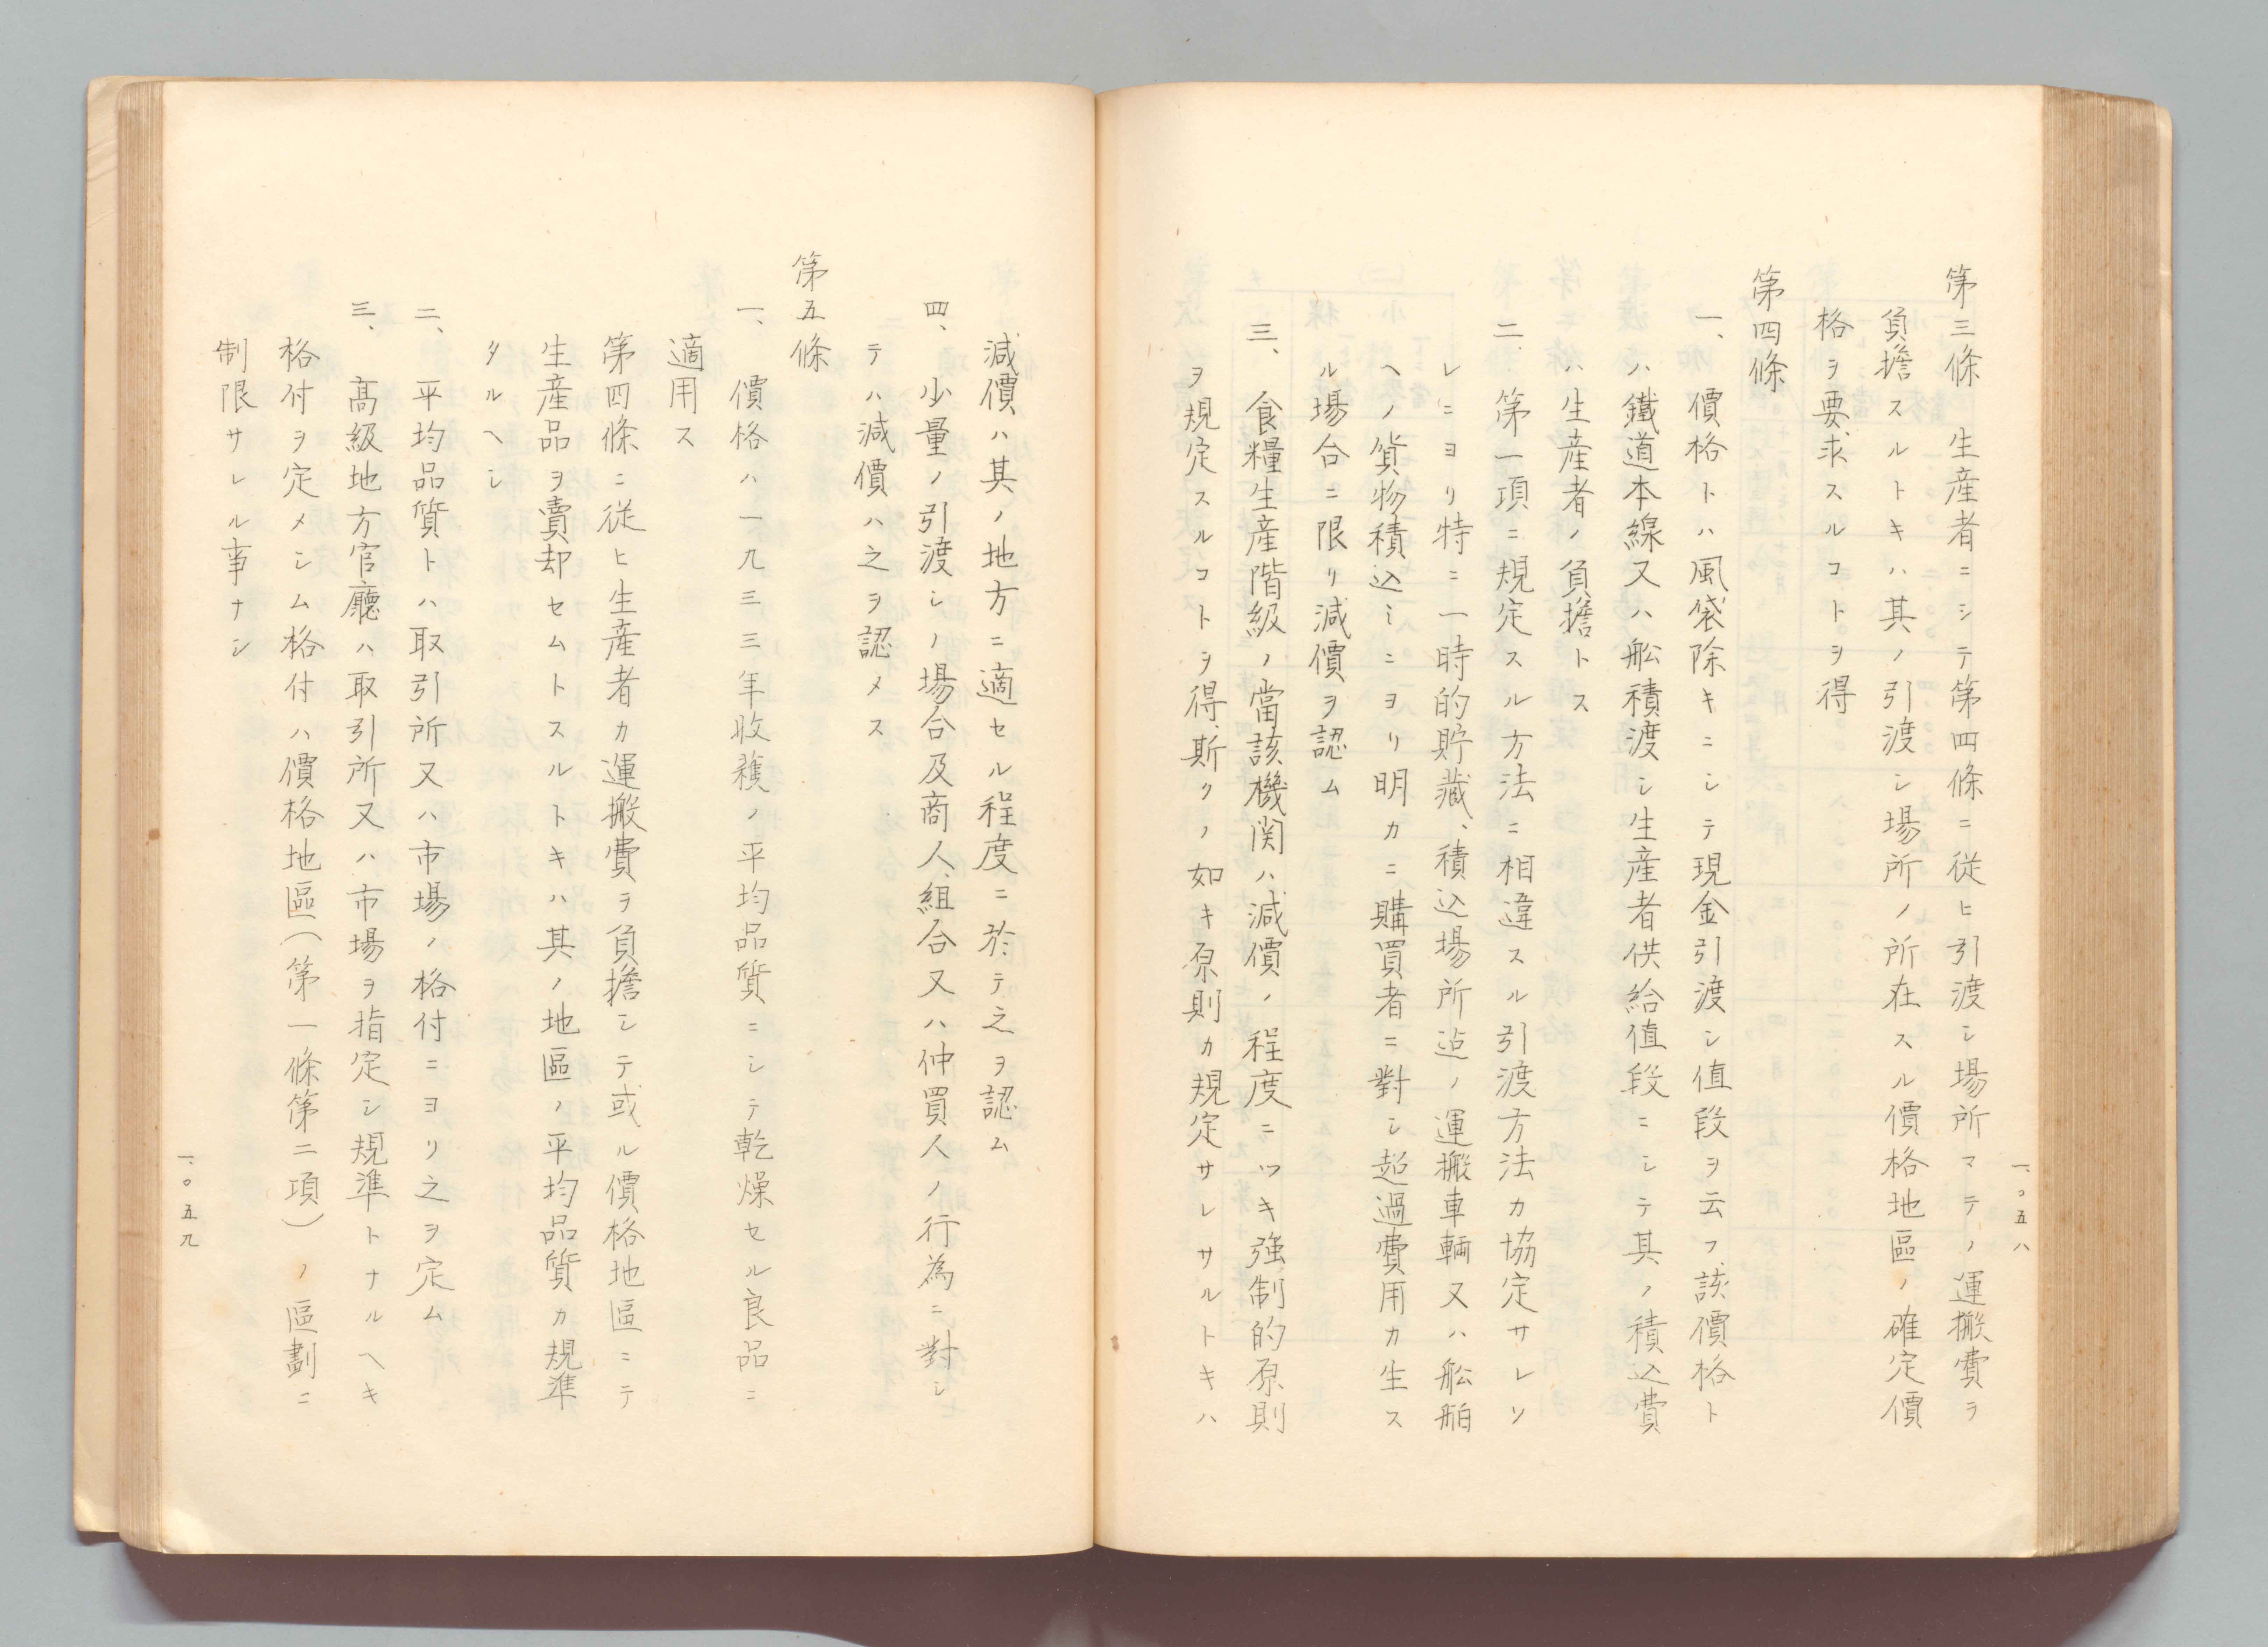 第三條　生産者ニシテ第四條ニ從ヒ引渡シ場所マテノ運搬費ヲ
負擔スルトキハ其ノ引渡シ場所ノ所在スル價格地區ノ確定價
格ヲ要求スルコトヲ得
第四條
一、價格トハ風袋除キニシテ現金引渡シ値段ヲ云フ、該價格ト
ハ鐵道本線又ハ船積渡シ生産者供給値段ニシテ其ノ積込費
ハ生産者ノ負擔トス
二、第一項ニ規定スル方法ニ相違スル引渡方法カ協定サレソ
レニヨリ特ニ一時的貯藏、積込場所迠ノ運搬車輛又ハ船舶
ヘノ貨物積込ミニヨリ明カニ購買者ニ對シ超過費用カ生ス
ル場合ニ限リ減價ヲ認ム
三、食糧生産階級ノ當該機関ハ減價ノ程度ニツキ強制的原則
ヲ規定スルコトヲ得、斯クノ如キ原則カ規定サレサルトキハ
一、〇五八
減價ハ其ノ地方ニ適セル程度ニ於テ之ヲ認ム
四、少量ノ引渡シノ場合及商人、組合又ハ仲買人ノ行為ニ對シ
テハ減價ハ之ヲ認メス
第五條
一、價格ハ一九三三年收穫ノ平均品質ニシテ乾燥セル良品ニ
適用ス
第四條ニ從ヒ生産者カ運搬費ヲ負擔シテ或ル價格地區ニテ
生産品ヲ賣却セムトスルトキハ其ノ地區ノ平均品質カ規準
タルヘシ
二、平均品質トハ取引所又ハ市場ノ格付ニヨリ之ヲ定ム
三、高級地方官廳ハ取引所又ハ市場ヲ指定シ規準トナルヘキ
格付ヲ定メシム格付ハ價格地區（第一條第二項）ノ區劃ニ
制限サレル事ナシ
一、〇五九